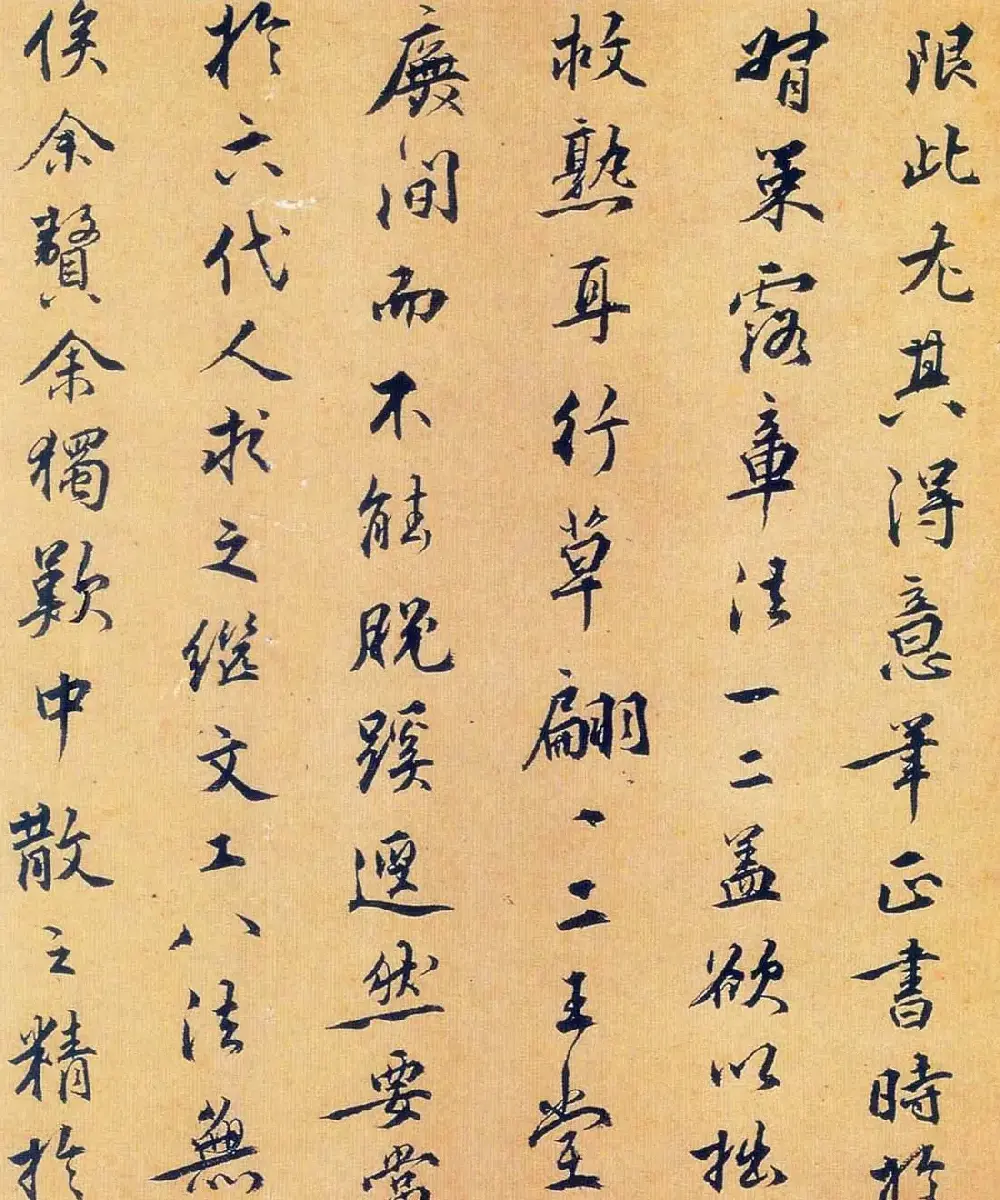 限此尤其得意笔正书时於
婿策露章法一二盖欲以拙
救熟耳行草翩〻二王堂
廡间而不能脱蹊迳然要當
於六代人求之继文工八法無
俟余贅余獨歎中散之精於